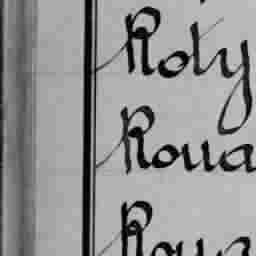 Roty
Roua
Roua